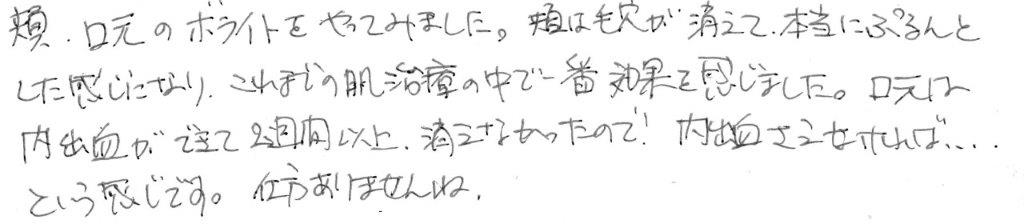 頬、口元のボライトをやってみました。頬は毛穴が消えて、本当にぷるんと
した感じになり、これまでの肌治療の中で一番効果を感じました。口元は
内出血ができて2週間以上、消えなかったので! 内出血さえなければ....
という感じです。仕方ありませんね。